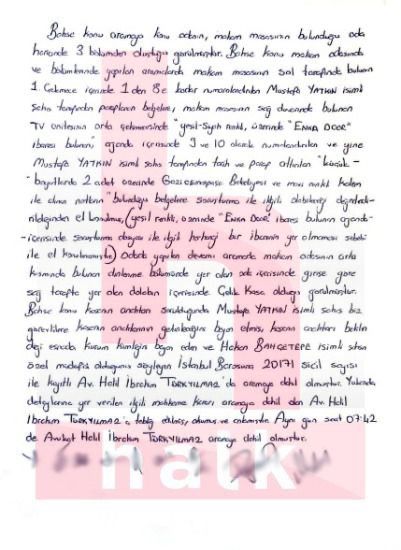 Bahse konu aramaya konu odanın, makam masasının bulunduğu oda
haricinde 3 bölümden oluştuğu görülmüştür. Bahse konu makam odasında
ve bölümlerinde yapılan aramalarda makam masasının sol tarafında bulunan
1. Çekmece içerisinde 1 den 8'e kadar numaralandırılan Mustafa YATKIN isimli
şahıs tarafından paraflanan belgelere, makam masasının sağ duvarında bulunan
TV ünitesinin orta çekmecesinde "yeşil-siyah renkli, üzerinde "ENKA DOOR"
ibaresi bulunan, ajanda içerisinde 9 ve 10 olarak numaralandırılan ve yine
Mustafa YATKIN isimli şahıs tarafından tarih ve paraf attırılan "küçük-
boyutlarda 2 adet üzerinde Gaziosmanpaşa Belediyesi ve mavi renkli kalem
ile alınan notların" bulunduğu belgelere soruşturma ile ilgili olabileceği değerlendi-
rildiğinden el konulmuş, (yeşil renkli, üzerinde "ENKA DOOR" ibaresi bulunan ajanda-
içerisinde soruşturma dosyası ile ilgili herhangi bir ibarenin yer olmaması sebebi
ile el konulmamıştır.) Odada yapılan devamı aramada makam odasının arka
kısmında bulunan dinlenme bölümünde yer alan oda içerisinde girişe göre
sağ tarafta yer alan dolabın içerisinde Çelik Kasa olduğu görülmüştür.
Bahse konu kasanın anahtarı sorulduğunda Mustafa YATKIN isimli şahıs biz
görevlilere kasanın anahtarının getirileceğini beyan etmiş, kasanın anahtarı beklen
diği esnada kurum kimliğini beyan eden ve Hakan BAHÇETEPE isimli şahsın
özel müdafisi olduğunu söyleyen İstanbul Barosuna 20171 sicil sayısı
ile kayıtlı Av. Halil İbrahim TÜRKYILMAZ da aramaya dahil olmuştur. Yukarıda
detaylarına yer verilen ilgili mahkeme kararı aramaya dahil olan Av. Halil
İbrahim TÜRKYILMAZ'a tebliğ edilmiş, okumuş ve anlamıştır. Aynı gün saat 07:42
de Avukat Halil İbrahim TÜRKYILMAZ aramaya dahil olmuştur.
halk